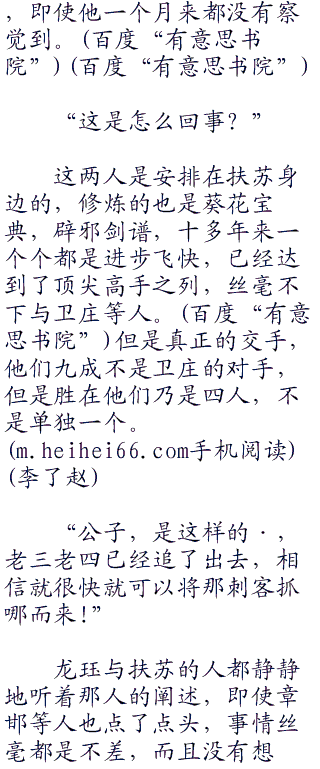 ，即使他一个月来都没有察
觉到。(百度“有意思书
院”)(百度“有意思书院”)
“这是怎么回事？”
这两人是安排在扶苏身
边的，修炼的也是葵花宝
典，辟邪剑谱，十多年来一
个个都是进步飞快，已经达
到了顶尖高手之列，丝毫不
下与卫庄等人。(百度“有意
思书院”)但是真正的交手，
他们九成不是卫庄的对手，
但是胜在他们乃是四人，不
是单独一个。
(m.heihei66.com手机阅读)
(李了赵)
“公子，是这样的·，
老三老四已经追了出去，相
信就很快就可以将那刺客抓
哪而来！”
龙珏与扶苏的人都静静
地听着那人的阐述，即使章
邯等人也点了点头，事情丝
毫都是不差，而且没有想